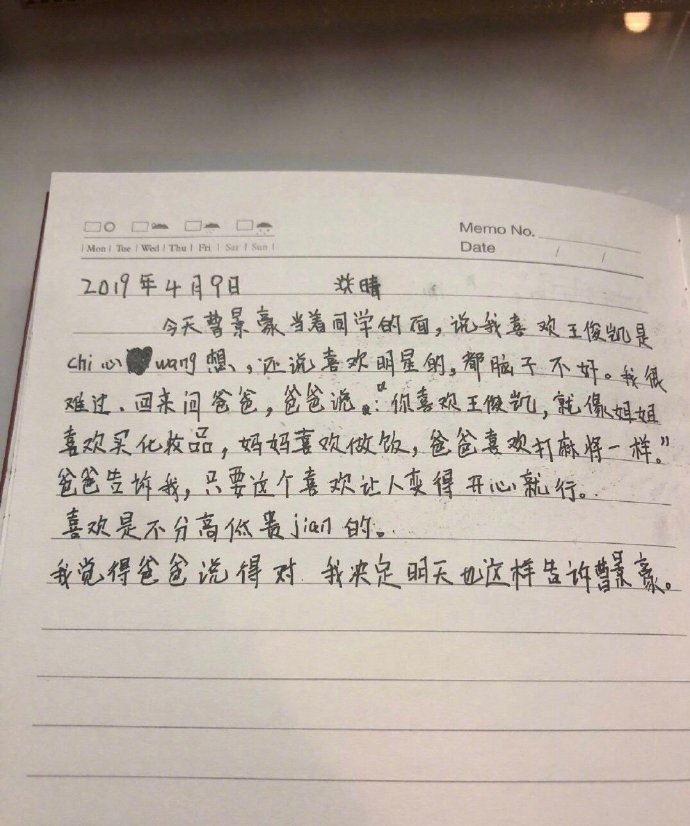 Memo No.
Mon Tue Wed Thu Fri Sat Sun
Date / /
2019年4月9日 晴
今天曹景豪当着同学的面,说我喜欢王俊凯是
chi心wang想、,还说喜欢明星的,都脑子不好。我很
难过、回来问爸爸,爸爸说:“你喜欢王俊凯,就像姐姐
喜欢买化妆品,妈妈喜欢做饭,爸爸喜欢打麻将一样。”
爸爸告诉我,只要这个喜欢让人变得开心就行。
喜欢是不分高低贵jian的。
我觉得爸爸说得对 我决定明天也这样告诉曹景豪。